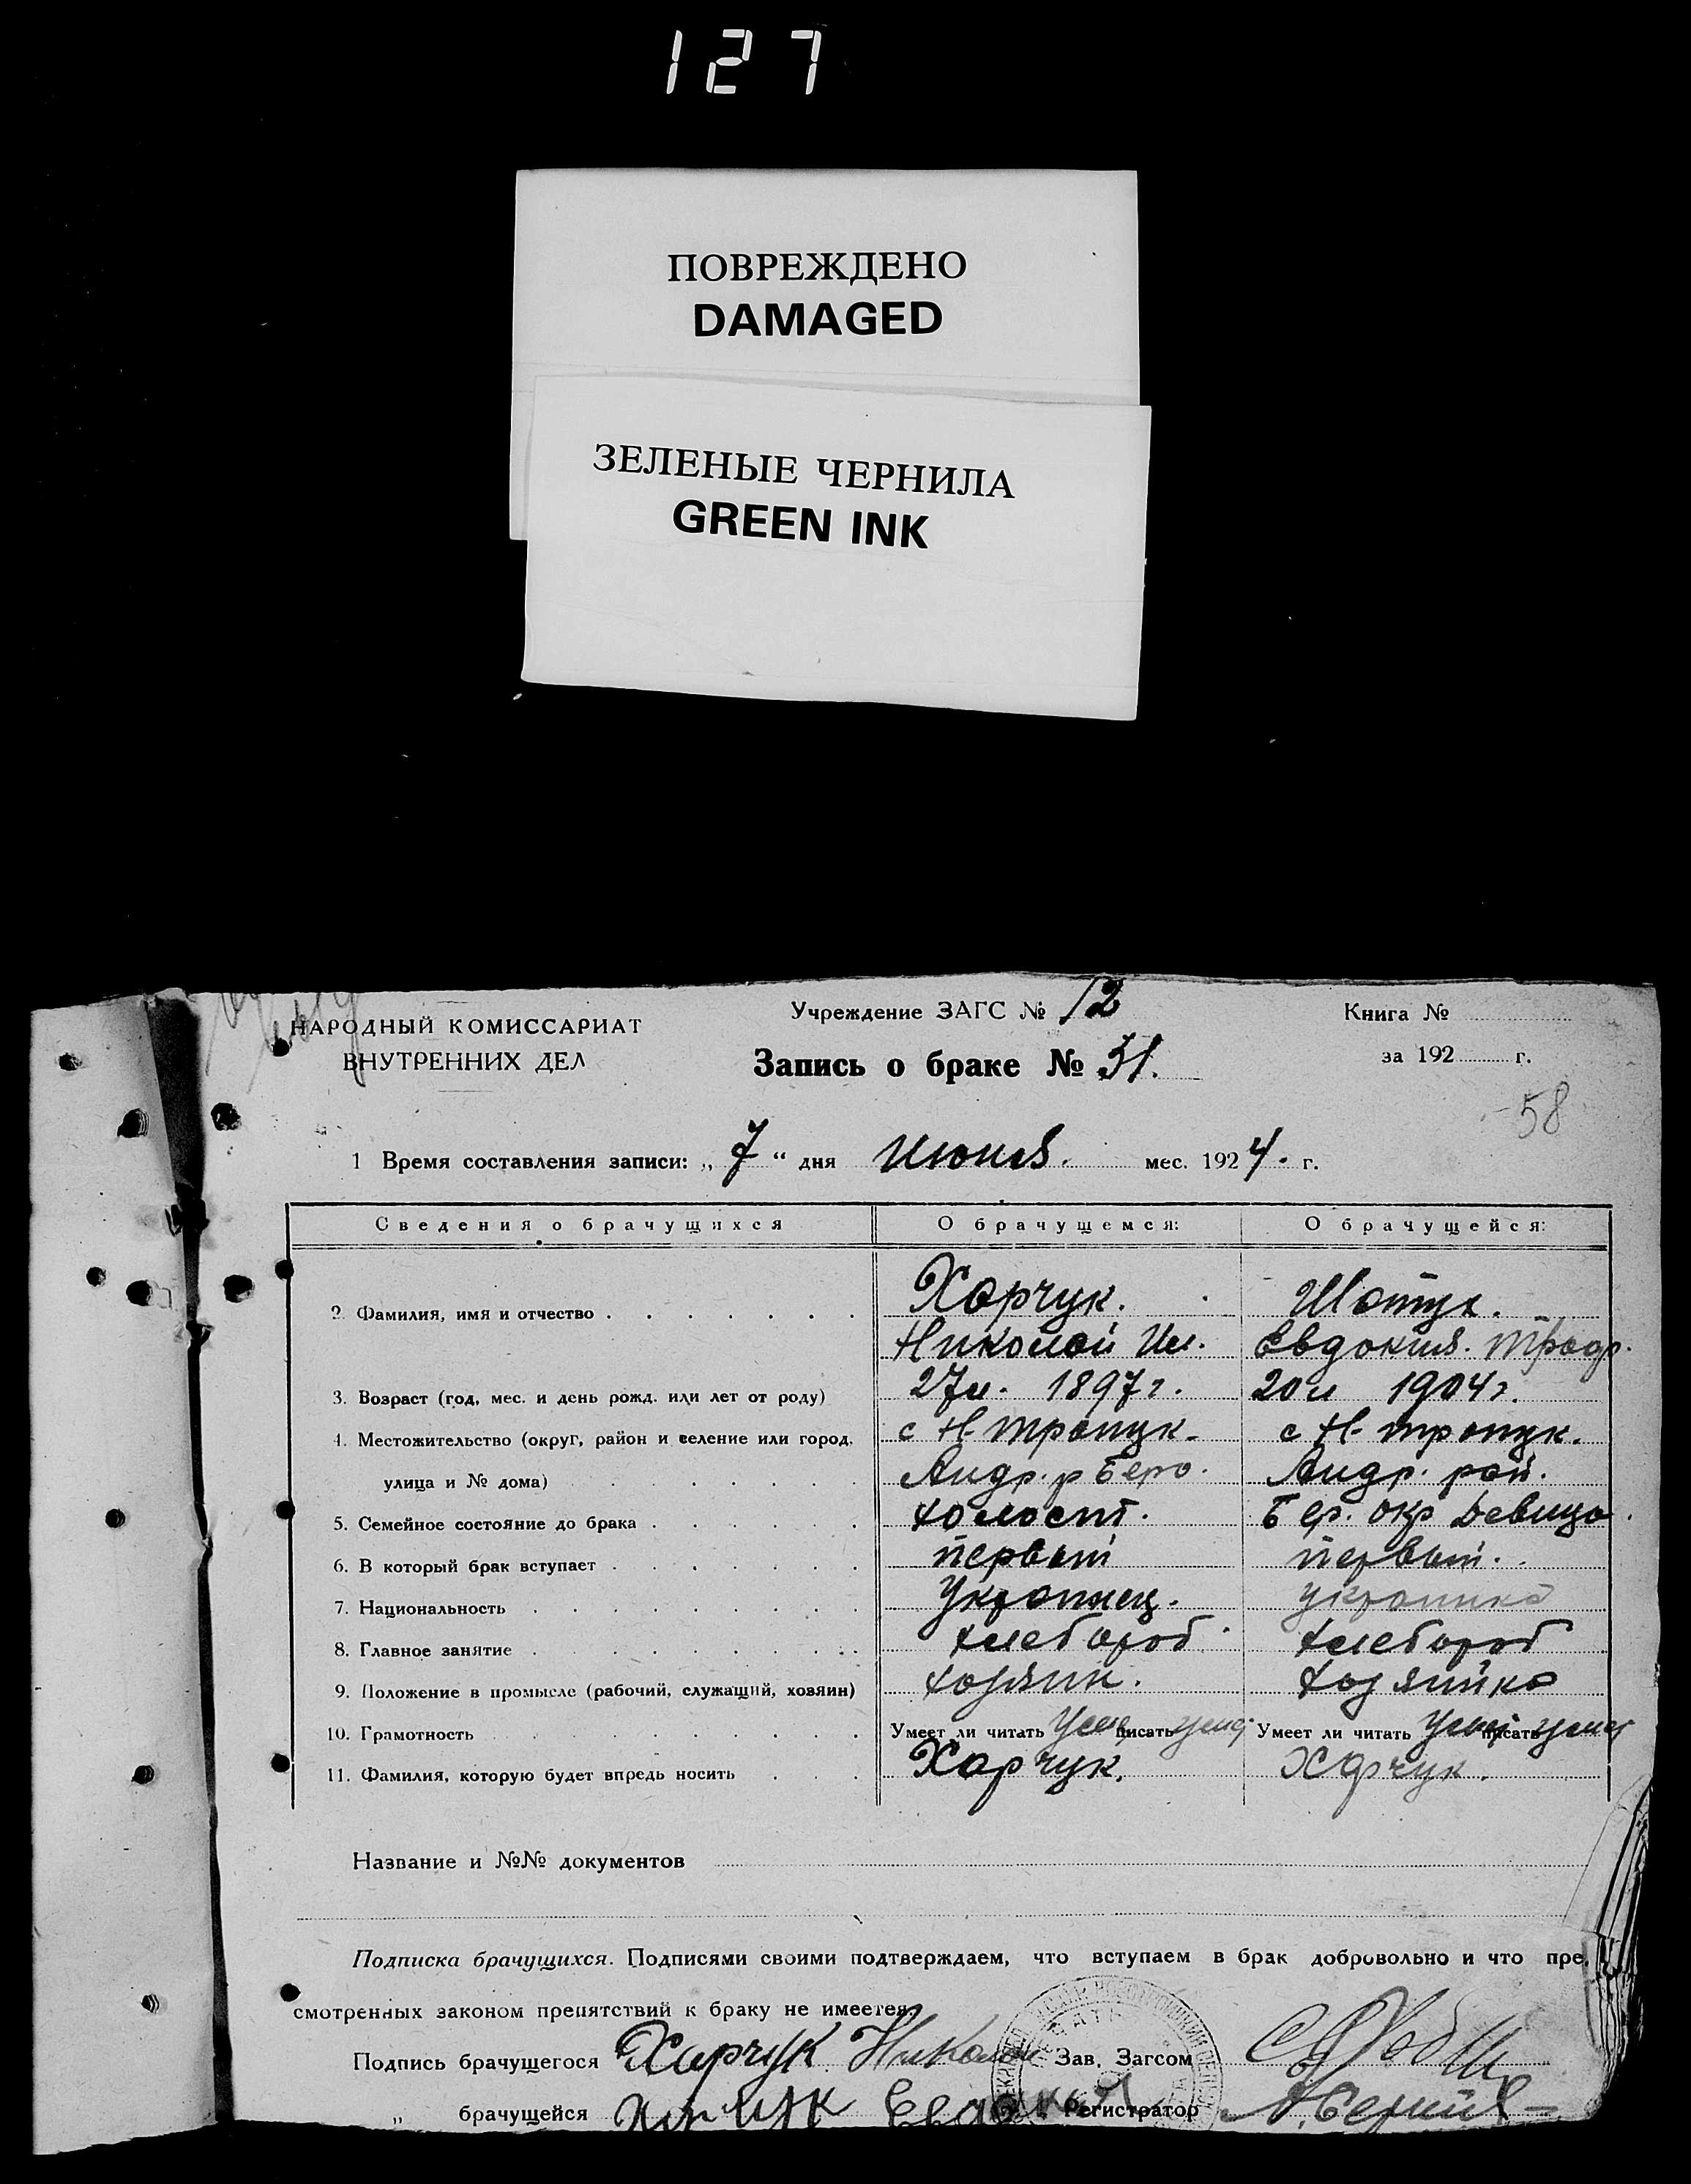 127
ПОВРЕЖДЕНО
DAMAGED
ЗЕЛЕНЫЕ ЧЕРНИЛА
GREEN INK
НАРОДНЫЙ КОМИССАРИАТ
ВНУТРЕННИХ ДЕЛ
Учреждение ЗАГС № 12
Запись о браке № 31.
Книга №
за 192 г.
58
1 Время составления записи: „ 7 “ дня июня. мес. 1924. г.
Сведения о брачущихся О брачущемся: О брачущейся:
2. Фамилия, имя и отчество Харчук. Шатук.
Николай Ил. Евдокия.
3. Возраст (год, мес. и день рожд. или лет от роду) 27л. 1897г. 20л 1904г.
4. Местожительство (округ, район и селение или город, с Н-тропук. с Н-тропук.
улица и № дома) Андр. р Бер. Андр. рай.
5. Семейное состояние до брака холост. Бер. окр девица.
6. В который брак вступает первый первый.
7. Национальность Украинец. украинка
8. Главное занятие хлебороб. хлебороб
9. Положение в промысле (рабочий, служащий, хозяин) хозяин. хозяйка
10. Грамотность Умеет ли читать Умеет писать умеет Умеет ли читать Умеет писать умеет
11. Фамилия, которую будет впредь носить Харчук. Харчук.
Название и №№ документов
Подписка брачущихся. Подписями своими подтверждаем, что вступаем в брак добровольно и что пре
смотренных законом препятствий к браку не имеется.
Подпись брачущегося Харчук Николай Зав. Загсом
„ брачущейся Харчук Евдокия Регистратор